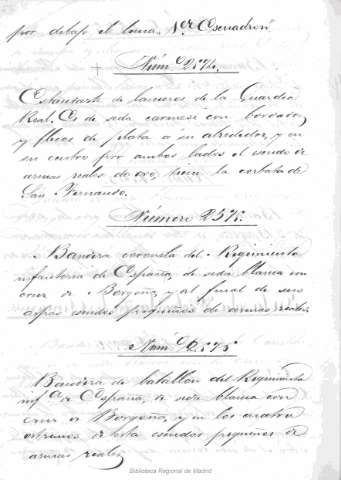 por debajo el lema 1er Escuadron
Núm.o 2574.
Estandarte de lanceros de la Guardia
Real. Es de seda carmesi con bordado
y flecos de plata a su alrededor, y en
su centro por ambos lados el escudo de
armas reales de oro, tiene la corbata de
San Fernando.
Número 2575.
Bandera coronela del Regimiento
infanteria de España, de seda blanca con
cruz de Borgoña, y al final de sus
aspas escudos pequeños de armas reales.
Núm.o
Bandera de batallon del Regimiento
inf.a de España, de seda blanca con
cruz de Borgoña, y en los cuatro
estremos de esta escudos pequeños de
armas reales
Biblioteca Regional de Madrid